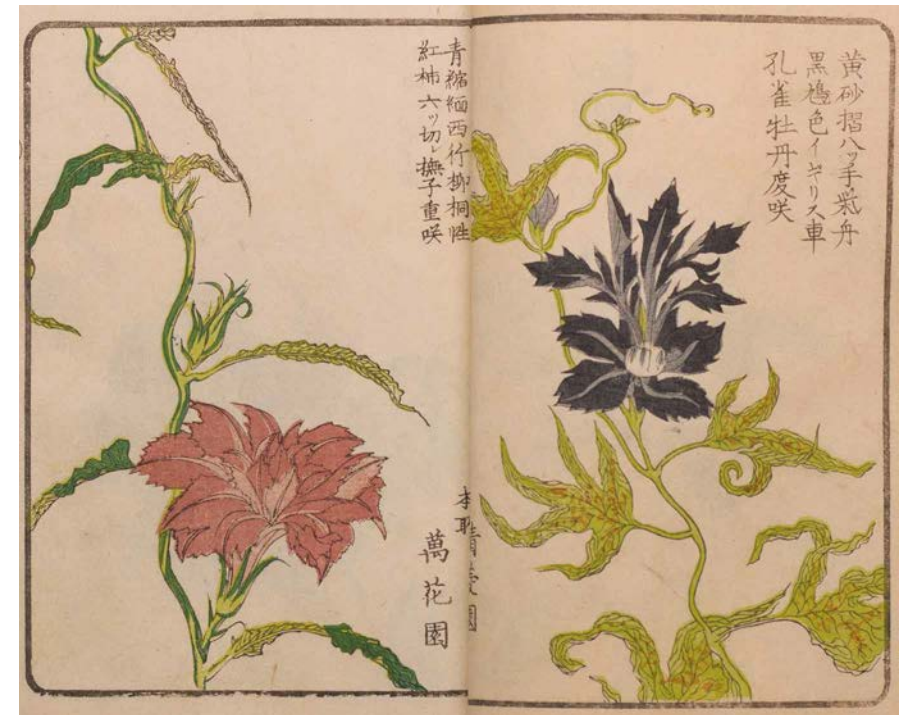 黄砂摺八ツ手
黒鳩色イギリス車
孔雀牡丹度咲
青縮緬西行柳桐性
紅柿六ツ切レ撫子重咲
晴 園
萬花園